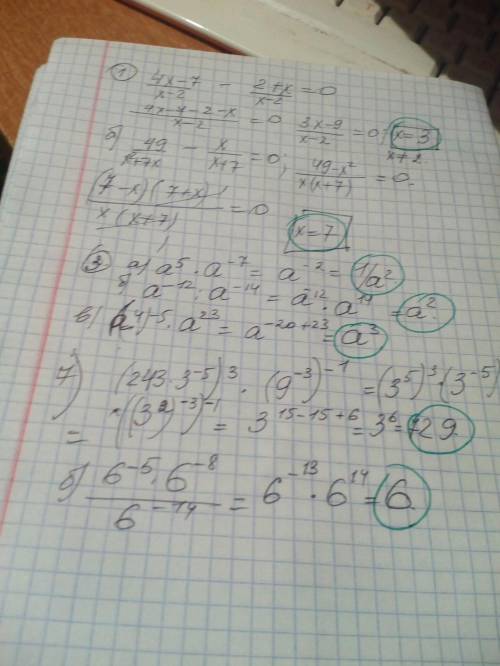 ① (4x-7)/(x-2) - (2+x)/(x-2) = 0
(4x-7-2-x)/(x-2) = 0 (3x-9)/(x-2) = 0; x=3
x≠2
б) 49/(x²+7x) - x/(x+7) = 0; (49-x²)/(x(x+7)) = 0.
((7-x)(7+x))/(x(x+7)) = 0 x=7
③ а) a⁵·a⁻⁷ = a⁻² = 1/a²
б) a⁻¹²:a⁻¹⁴ = a⁻¹²·a¹⁴ = a²
в) (a⁴)⁻⁵·a²³ = a⁻²⁰⁺²³ = a³
7) (243·3⁻⁵)³·(9⁻³)⁻¹ = (3⁵)³·(3⁻⁵)
·((3²)⁻³)⁻¹ = 3¹⁵⁻¹⁵⁺⁶ = 3⁶ = 729
=
б) (6⁻⁵·6⁻⁸)/6⁻¹⁴ = 6⁻¹³·6¹⁴ = 6